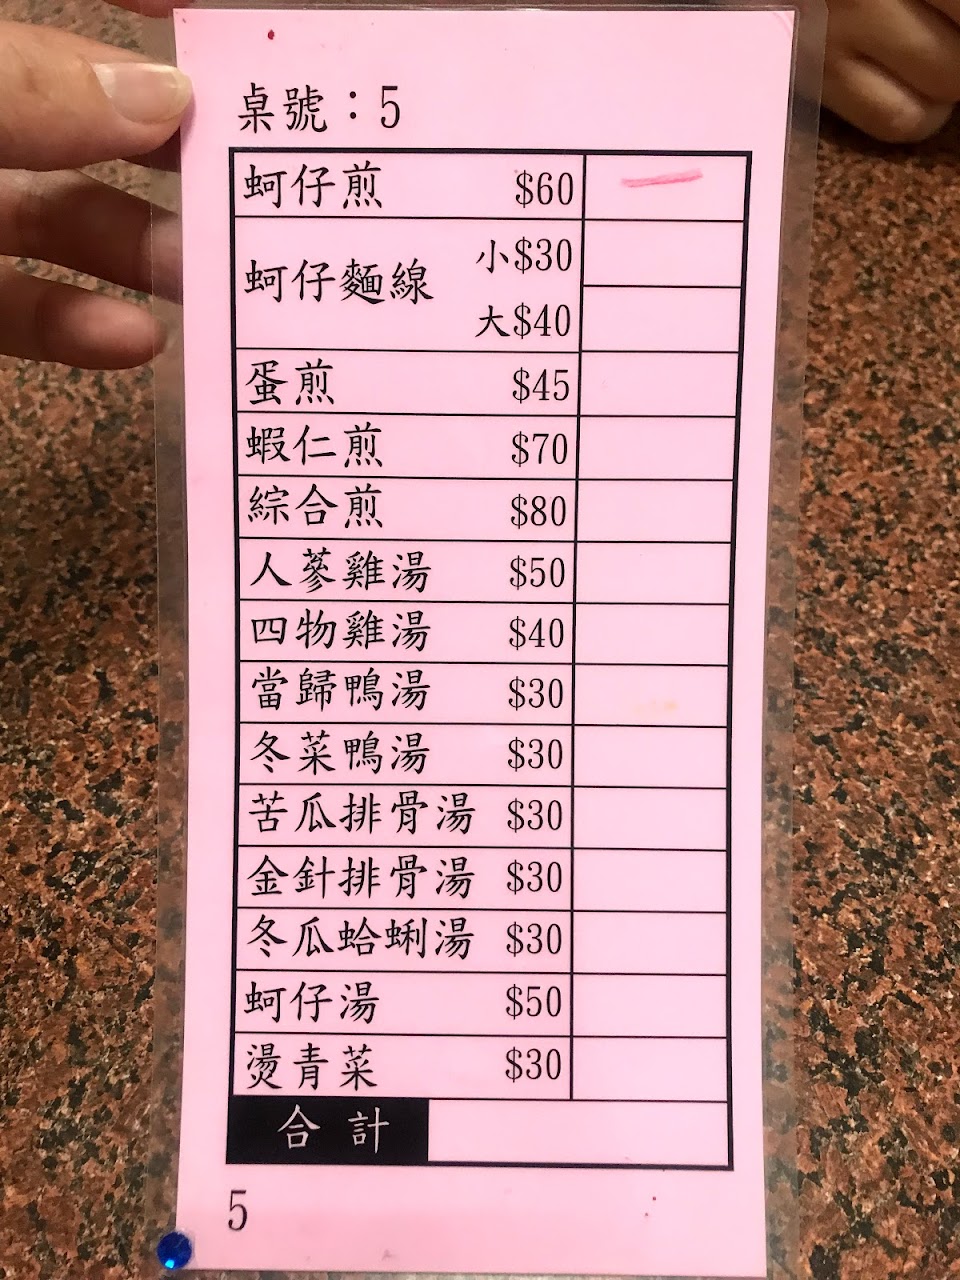 桌號：5
蚵仔煎 $60
蚵仔麵線 小$30
大$40
蛋煎 $45
蝦仁煎 $70
綜合煎 $80
人蔘雞湯 $50
四物雞湯 $40
當歸鴨湯 $30
冬菜鴨湯 $30
苦瓜排骨湯 $30
金針排骨湯 $30
冬瓜蛤蜊湯 $30
蚵仔湯 $50
燙青菜 $30
合計
5